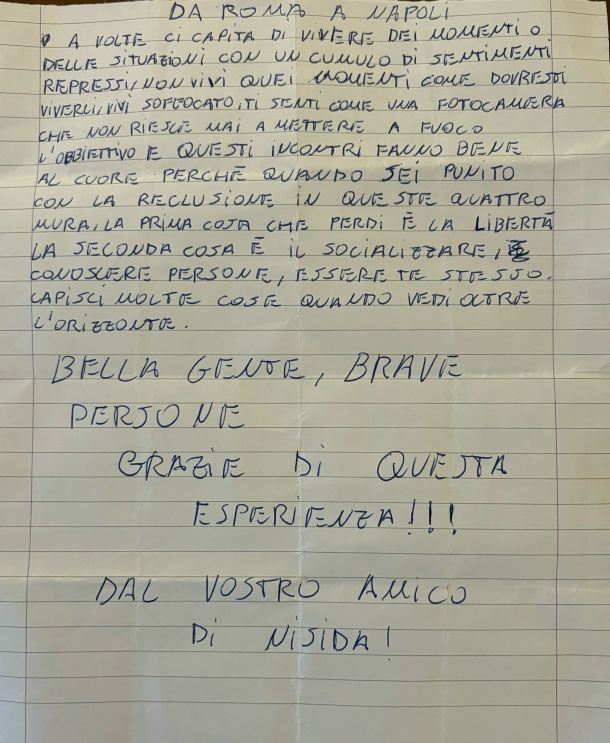 DA ROMA A NAPOLI
A VOLTE CI CAPITA DI VIVERE DEI MOMENTI O
DELLE SITUAZIONI CON UN CUMULO DI SENTIMENTI
REPRESSI, NON VIVI QUEI MOMENTI COME DOVRESTI
VIVERLI, VIVI SOFFOCATO, TI SENTI COME UNA FOTOCAMERA
CHE NON RIESCE MAI A METTERE A FUOCO
L'OBBIETTIVO E QUESTI INCONTRI FANNO BENE
AL CUORE PERCHÈ QUANDO SEI PUNITO
CON LA RECLUSIONE IN QUESTE QUATTRO
MURA, LA PRIMA COSA CHE PERDI È LA LIBERTÀ
LA SECONDA COSA È IL SOCIALIZZARE,
CONOSCERE PERSONE, ESSERE TE STESSO.
CAPISCI MOLTE COSE QUANDO VEDI OLTRE
L'ORIZZONTE.
BELLA GENTE, BRAVE
PERSONE
GRAZIE Di QUESTA
ESPERIENZA!!!
DAL VOSTRO AMICO
Di NiSiDA!